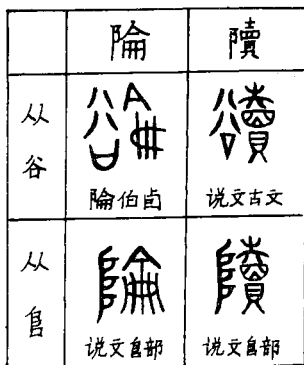 陯 𨽍
从谷
陯伯卣 说文古文
从𨸏
说文𨸏部 说文𨸏部